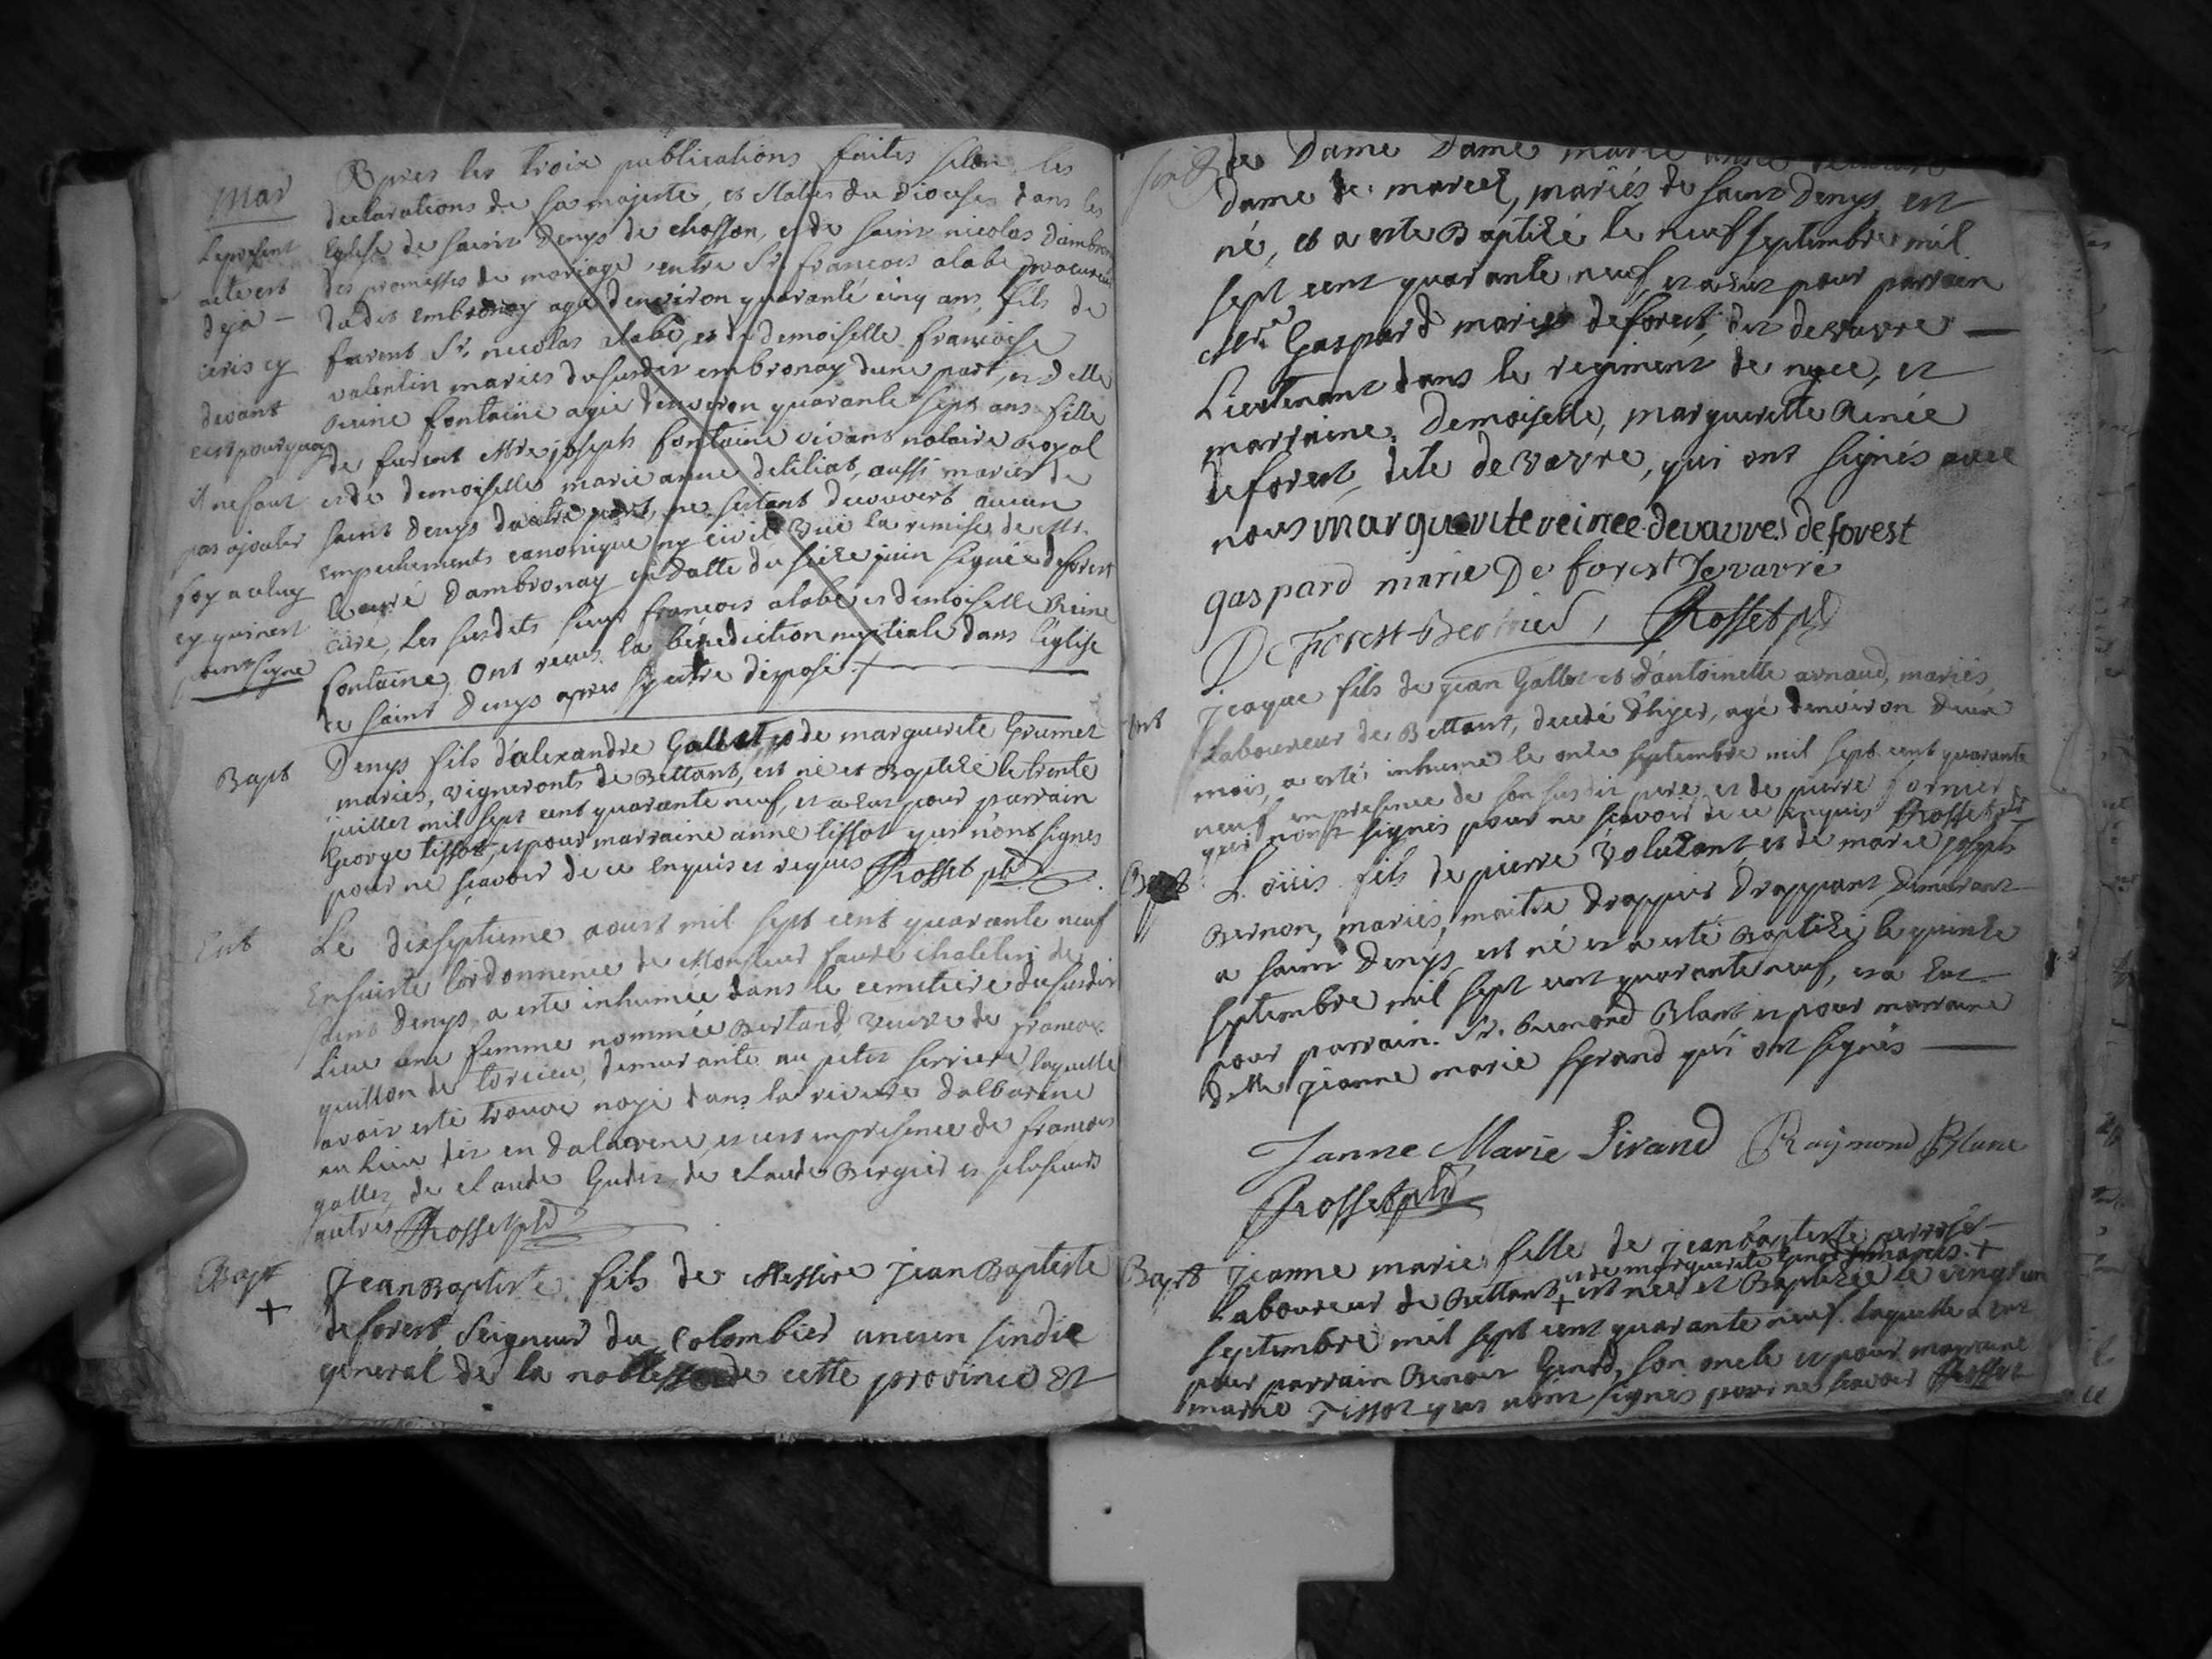 Mar
Le present
acte est
deja —
ecris cy
devant
cest pourquoy
il ne faut
pas ajouter
foy a celuy
cy qui nest
point signe
Apres les troix publications faites selon les
declarations de sa majeste, et statuts du diocese dans les
Eglise de saint Denys de chosson, et de saint nicolas dambronay
des promesses de mariage entre Sr. francois alabe procureur
dudit embronay agé denviron quarante cinq ans, fils de
furent Sr. nicolas alabe, et de demoiselle francoise
valentin mariés du susdit embronay dune part, et delle
Reine fontaine agée denviron quarante sept ans fille
de furent Mre joseph fontaine vivant notaire Royal
et de demoiselle marie anne deliliat, aussi mariés de
saint Denys dautre part, ne sestant decouvert aucun
empechements canonique ny civil Vüe la remise de Mr.
le curé dambronay en datte du seize juin signée deforest
curé, Les susdits sieur francois alabe et demoiselle Reine
fontaine, Ont receus la bénédiction nuptiale dans l'église
de saint Denys apres
Bapt
Denys fils d'alexandre Gallet et de marguerite Grumet
mariés, vignerons de Bettant, est né et Baptizé le trente
juillet mil sept cent quarante neuf, et a eut pour parrain
George tissot, et pour marraine anne tissot qui n'ont signés
pour ne sçavoir de ce enquis et requis Rosset pbr
Ent
Le dixseptieme aoust mil sept cent quarante neuf
Ensuiste l'ordonnence de Monsieur faure chatelin de
saint Denys, a este inhumée dans le cemitiere du susdit
Lieu une femme nommée Bertand veuve de francois
guillon de torcieu, demeurante au petit serriere laquelle
avoir esté trouvé noyé dans la riviere dalbarine
au lieu dit en dalavene, et ce en presence de francois
gallet, de claude Gudet, de claude Bergier et plusieurs
autres Rosset pbr
Bapt
+
Jean Baptiste fils de Messire Jean Baptiste
deforest, Seigneur du Colombier ancien sindic
general de la noblesse de cette province Et
de Dame Dame marie anne
dame de marcel, mariés de saint Denys, est
né, et a este Baptizé le neuf septembre mil
sept cent quarante neuf, et a eut pour parrain
Mre Gaspard marie deforest, dit devavre —
Lieutenant dans le regiment de nyce, et
marraine, Demoiselle, marguerette Reinée
deforest, dite devavre, qui ont signés avec
nous marguerite reinee devavres deforest
gaspard marie De forest Devavre
De Forest Bertrier, Rosset pbr
Ent
Jeaque fils de jean Gallet et d'antoinette arnaud, mariés,
Laboureur de Bettant, decedé d'hyer, agé denviron deux
mois, a esté inhumé le onze septembre mil sept cent quarante
neuf en presence de son susdit pere et de pierre fornier
qui n'ont signés pour ne sçavoir de ce enquis Rosset pbr
Bapt
Louis fils de pierre Voluzant et de marie joseph
Bernon, mariés, maitre drappier drappant, demeurant
a saint Denys est né et a esté Baptizé le quinze
septembre mil sept cent quarante neuf, et a eut
pour parrain. Sr. Remond Blanc et pour marraine
delle jeanne marie sirand qui ont signés —
Janne Marie Sirand Raymond Blanc
Rosset pbr
Bapt
Jeanne marie fille de jean baptiste perrosset
et de marguerite Genod mariés +
Laboureur de Bettant + est née et Baptizée le vingt un
septembre mil sept cent quarante neuf. laquelle a eut
pour parrain Benoit Genod, son oncle et pour marraine
marie Tissot qui n'ont signés pour ne sçavoir Rosset